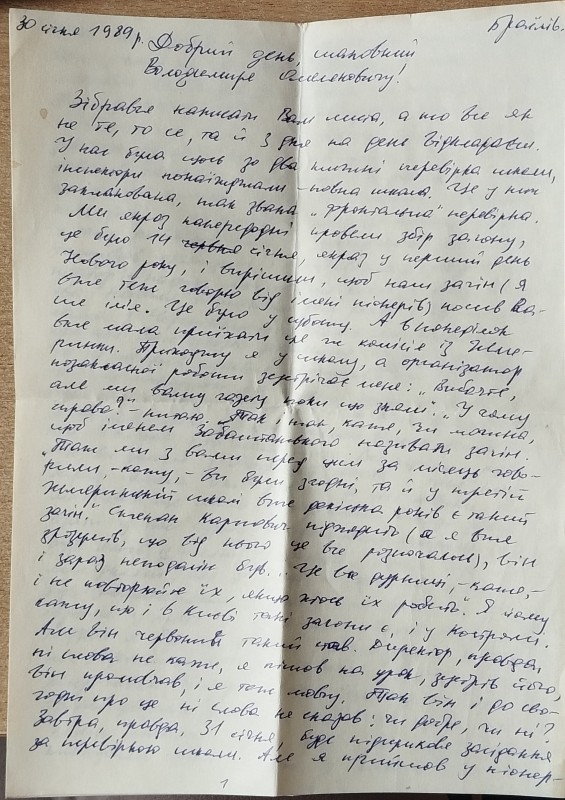 30 січня 1989 р. Браїлів.
Добрий день, шановний
Володимире Омеляновичу!
Зібрався написати Вам листа, а то все як
не те, то се, та й з дня на день відкладаєш.
У нас була щось за два тижні перевірка школи,
інспектори понаїжджали – повна школа. Це у них
запланована, так звана „фронтальна" перевірка.
Ми якраз напередодні провели збір загону,
це було 14 січня, якраз у перший день
Нового року, і вирішили, щоб наш загін (я
вже теж говорю від імені піонерів) носив Ва-
ше ім'я. Це було у суботу. А в понеділок
вже мала приїхати ця комісія із Жме-
ринки. Приходжу я у школу, а організатор
позакласної роботи зустрічає мене: „Вибачте,
але ми вашу газету поки що зняли". „У чому
справа?" – питаю. „Так і так, каже, чи можна,
щоб іменем Забаштанського називати загін.
„Так ми з вами перед цим за місяць гово-
рили, – кажу, – ви були згодні, та й у третій
жмеринській школі вже декілька років є такий
загін". Степан Карпович підходить (а я вже
зрозумів, що від нього це все розпочалося), він
і зараз неподалік був. „Це все дурниці, – кажу, –
і не повторюйте їх, якщо хтось їх робить". Я йому
кажу, що і в Києві такі загони є, і у Костромі.
Аж він червоний такий став. Директор, правда,
ні слова не каже, я пішов на урок, зустрів його,
він промовчав, і я теж мовчу. Так він і до сьо-
годні про це ні слова не сказав: чи добре, чи ні?
Завтра, правда, 31 січня, буде підсумкове засідання
за перевіркою школи. Але я прийшов у піонер-
1